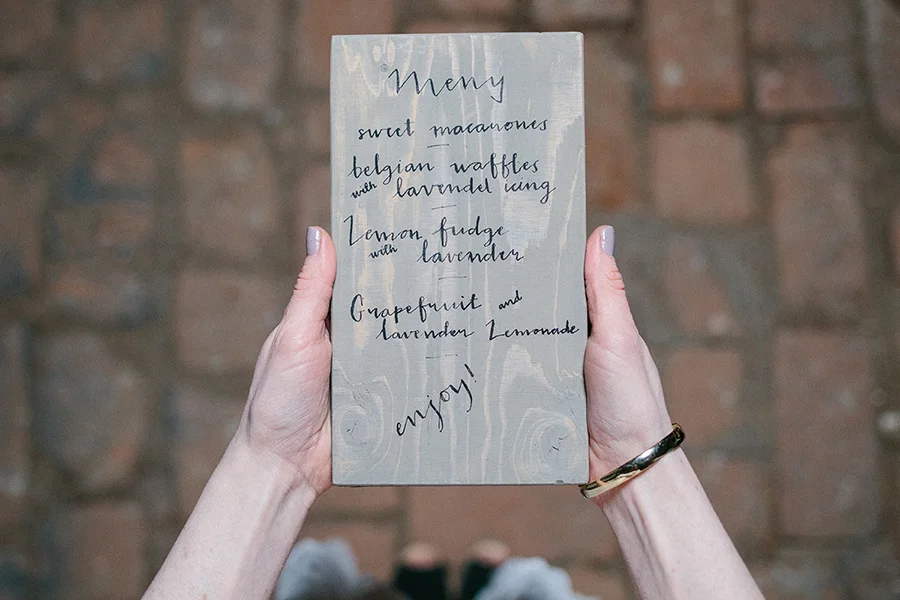 Meny
sweet macarones
belgian waffles
with lavendel icing
Lemon fudge
with lavender
Grapefruit and
lavender Lemonade
enjoy!